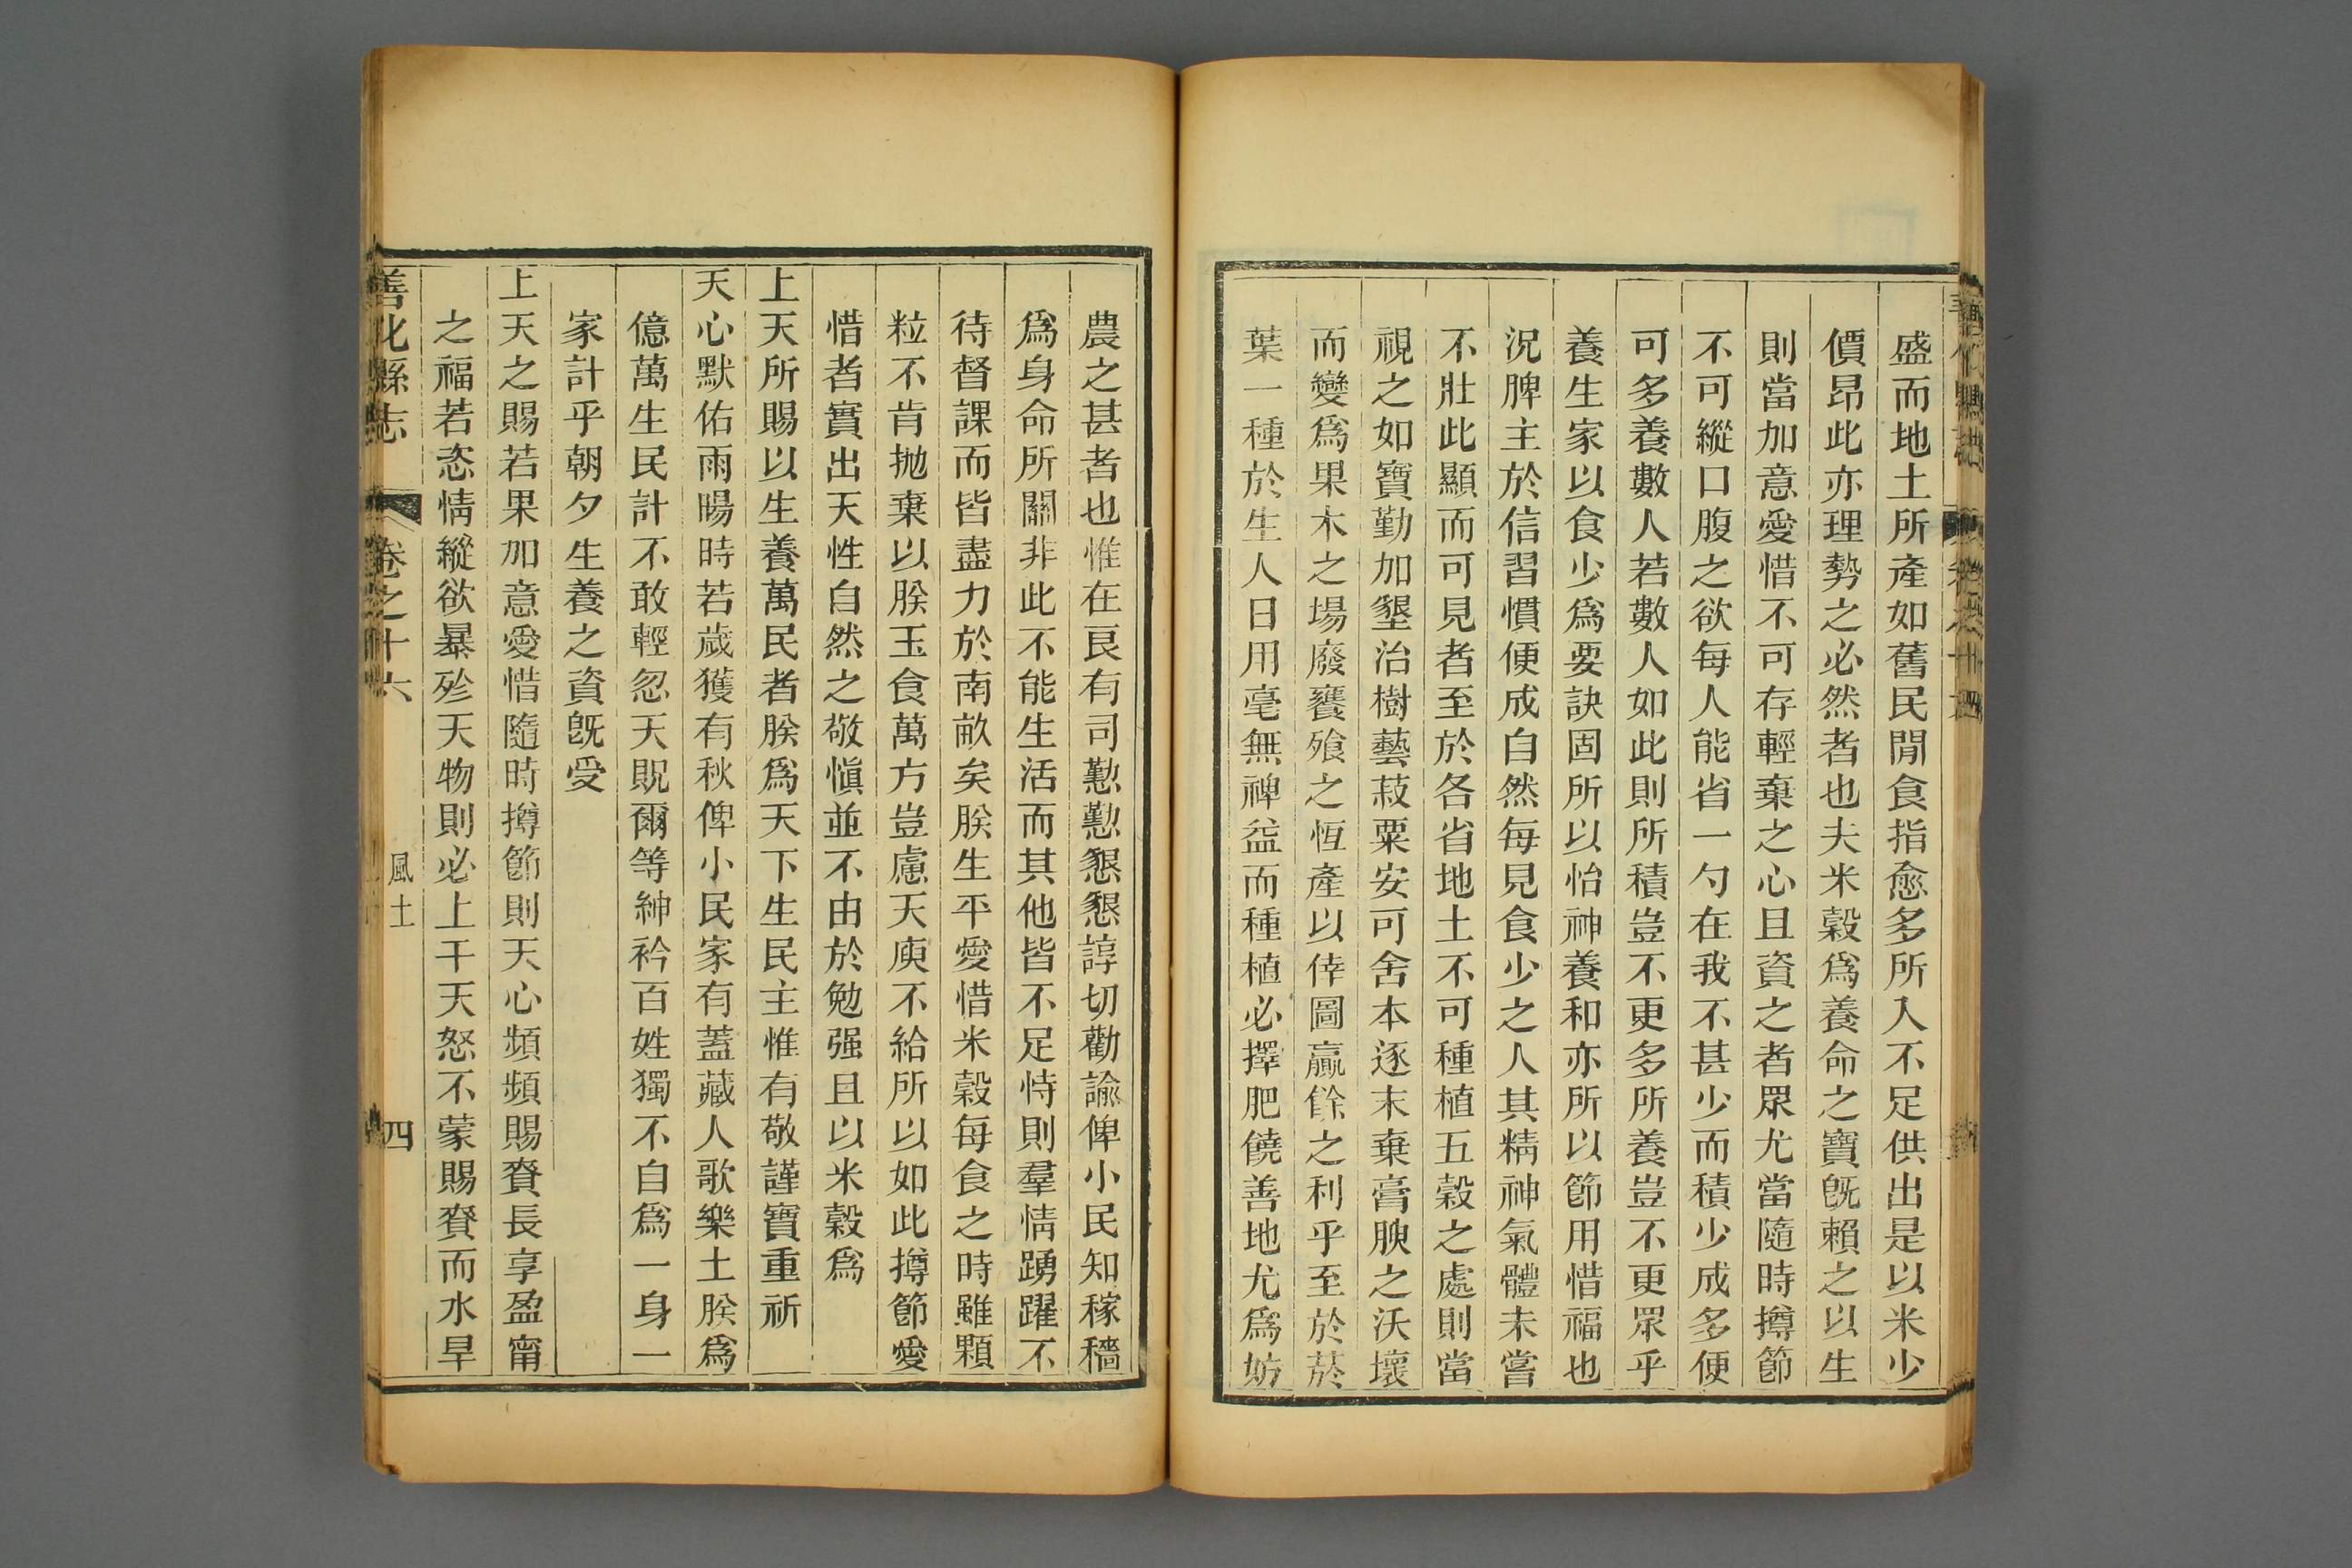 盛而地土所產如舊民閒食指愈多所入不足供出是以米少
價昂此亦理勢之必然者也夫米穀爲養命之寶旣賴之以生
則當加意愛惜不可存輕棄之心且資之者眾尤當隨時撙節
不可縱口腹之欲每人能省一勺在我不甚少而積少成多便
可多養數人若數人如此則所積豈不更多所養豈不更眾乎
養生家以食少爲要訣固所以怡神養和亦所以節用惜福也
況脾主於信習慣便成自然每見食少之人其精神氣體未嘗
不壯此顯而可見者至於各省地土不可種植五穀之處則當
視之如寶勤加墾治樹藝菽粟安可舍本逐末棄膏腴之沃壞
而變爲果木之場廢饔飧之恆產以倖圖贏餘之利乎至於菸
葉一種於生人日用毫無裨益而種植必擇肥饒善地尤爲妨
農之甚者也惟在良有司懃懃懇懇諄切勸諭俾小民知稼穡
爲身命所關非此不能生活而其他皆不足恃則羣情踴躍不
待督課而皆盡力於南畝矣朕生平愛惜米穀每食之時雖顆
粒不肯拋棄以朕玉食萬方豈慮天庾不給所以如此撙節愛
惜者實出天性自然之敬愼並不由於勉强且以米穀爲
上天所賜以生養萬民者朕爲天下生民主惟有敬謹寶重祈
天心默佑雨暘時若歲獲有秋俾小民家有蓋藏人歌樂土朕爲
億萬生民計不敢輕忽天貺爾等紳衿百姓獨不自爲一身一
家計乎朝夕生養之資旣受
上天之賜若果加意愛惜隨時撙節則天心頻頻賜賚長享盈甯
之福若恣情縱欲暴殄天物則必上干天怒不蒙賜賚而水旱
善化縣志 卷之十六 風土 四